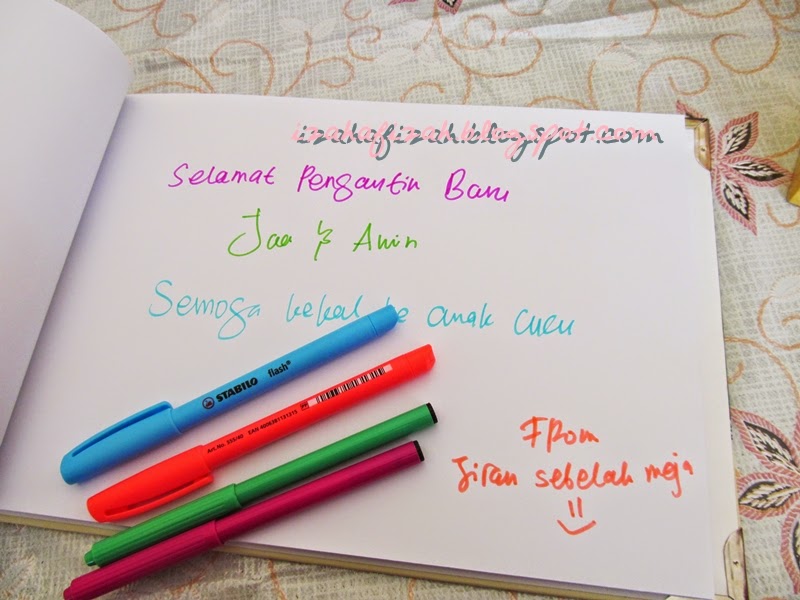 izahafizah.blogspot.com
Selamat Pengantin Baru
Jaa & Amin
Semoga kekal ke anak cucu
STABILO flash®
Art.No. 555/40 EAN 4006381131315
From
Jiran sebelah meja